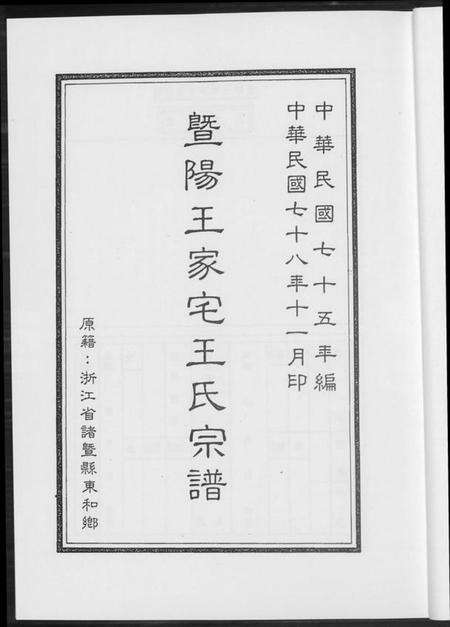 中華民國七十五年編
中華民國七十八年十一月印
暨陽王家宅王氏宗譜
原籍：浙江省諸暨縣東和鄉